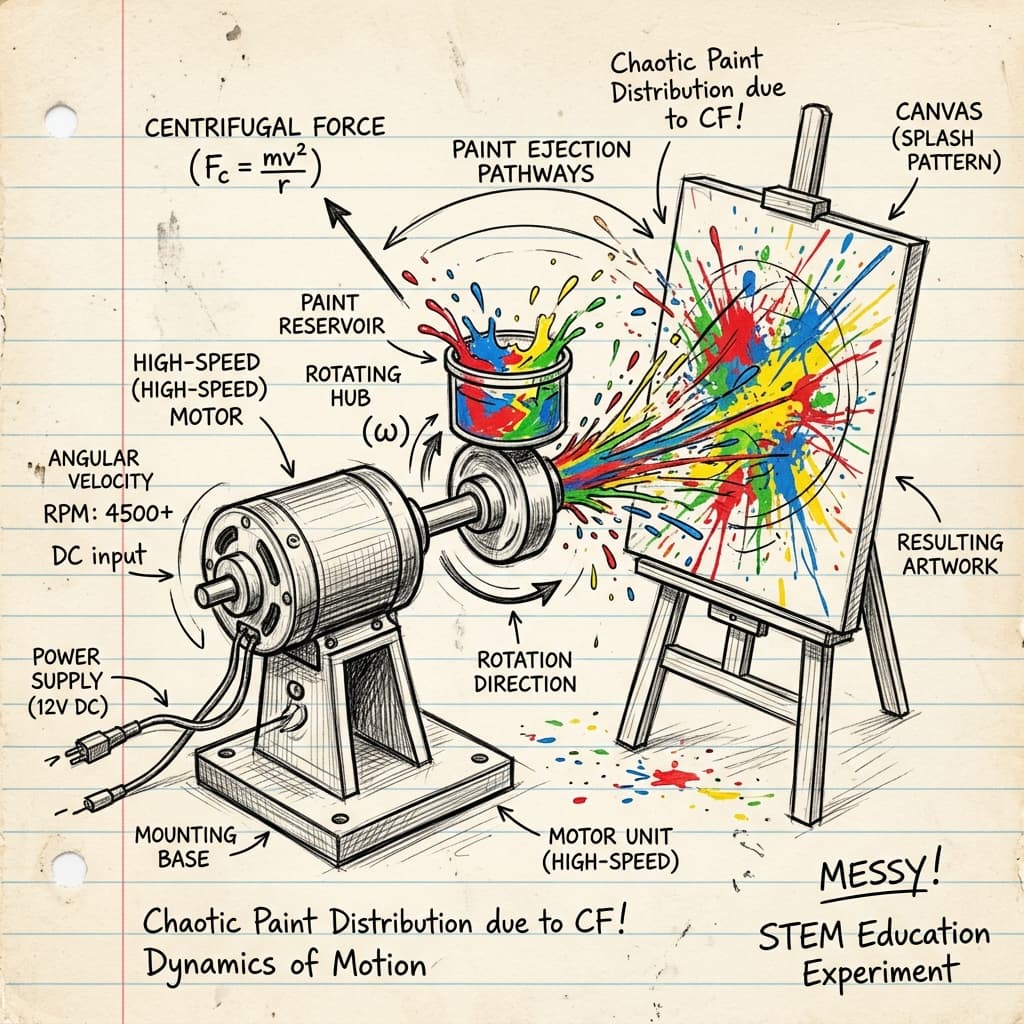 Chaotic Paint
Distribution due
to CF!
CENTRIFUGAL FORCE
(F_c = mv²/r)
PAINT EJECTION
PATHWAYS
CANVAS
(SPLASH
PATTERN)
PAINT
RESERVOIR
HIGH-SPEED
(HIGH-SPEED)
MOTOR
ROTATING
HUB
(ω)
ANGULAR
VELOCITY
RPM: 4500+
DC input
RESULTING
ARTWORK
POWER
SUPPLY
(12V DC)
ROTATION
DIRECTION
MOUNTING
BASE
MOTOR UNIT
(HIGH-SPEED)
MESSY!
Chaotic Paint Distribution due to CF!
Dynamics of Motion
STEM Education
Experiment